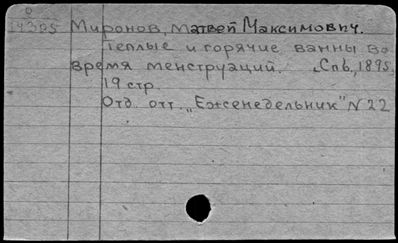 14305 Миронов, Матвей Максимович.
Теплые и горячие ванны во
время менструаций. Спб, 1895,
19 стр.
Отд. отт. „Еженедельник" N 22